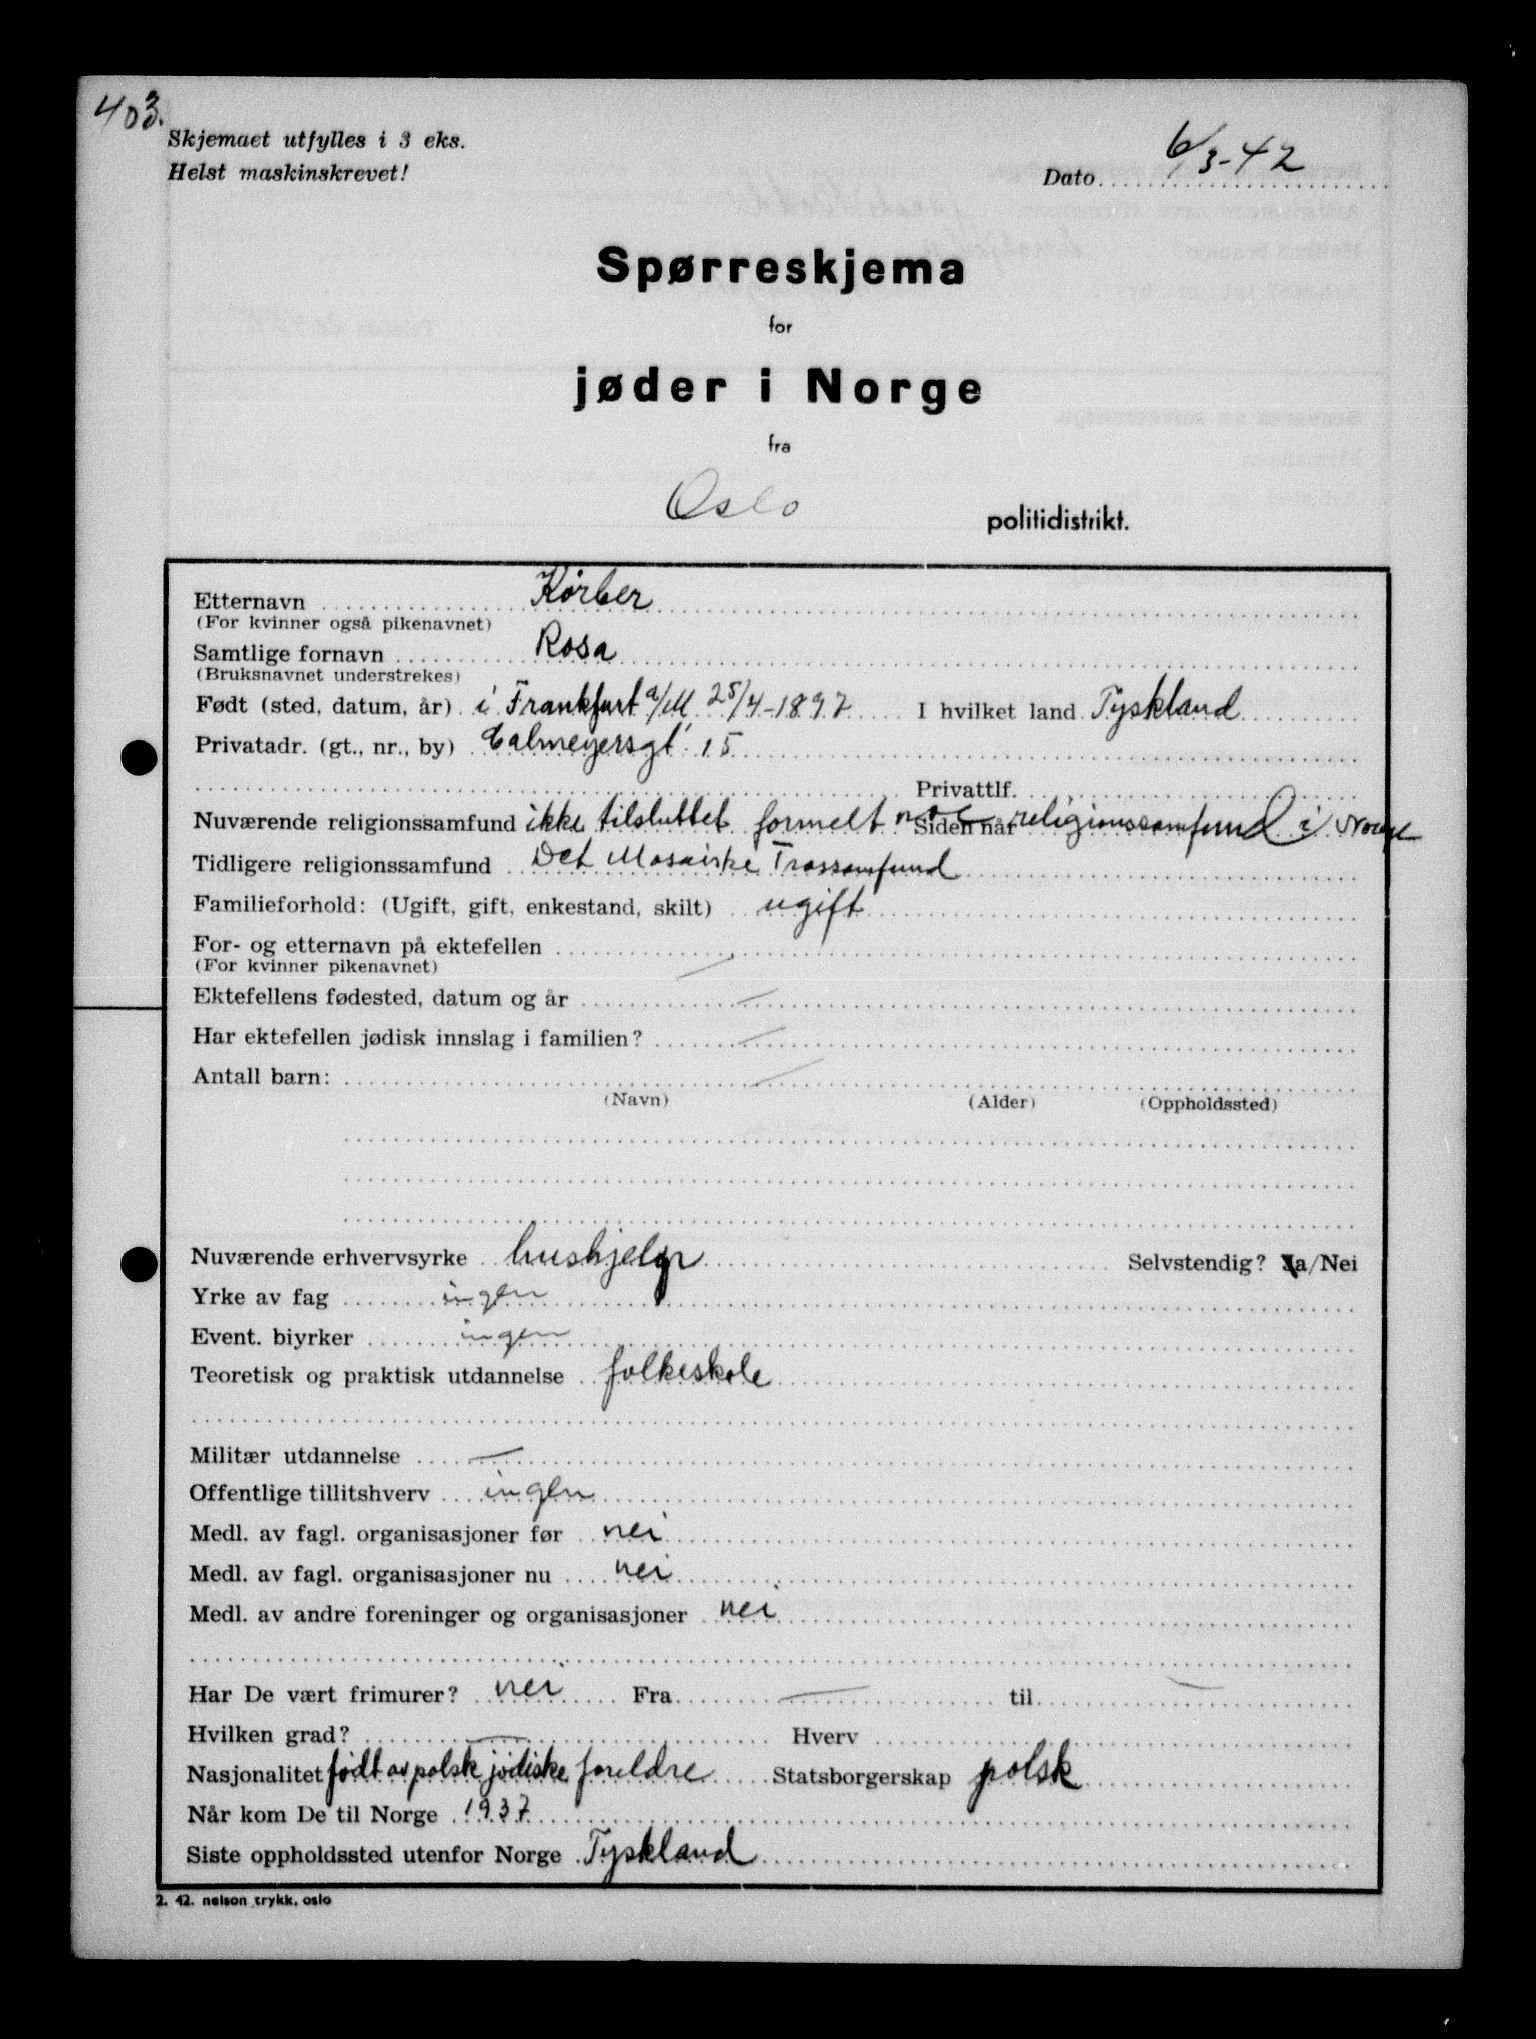 403.
Skjemaet utfylles i 3 eks.
Helst maskinskrevet!
Dato 6/3-42
Spørreskjema
for
jøder i Norge
fra
Oslo politidistrikt.
Etternavn Körber
(For kvinner også pikenavnet)
Samtlige fornavn Rosa
(Bruksnavnet understrekes)
Født (sted, datum, år) i Frankfurt a/M 25/4-1897 I hvilket land Tyskland
Privatadr. (gt., nr., by) Calmeyersgt 15
Privattlf.
Nuværende religionssamfund ikke tilsluttet formelt noe Siden når religionssamfund i Norge
Tidligere religionssamfund Det Mosaiske Trossamfund
Familieforhold: (Ugift, gift, enkestand, skilt) ugift
For- og etternavn på ektefellen —
(For kvinner pikenavnet)
Ektefellens fødested, datum og år —
Har ektefellen jødisk innslag i familien? —
Antall barn: —
(Navn) (Alder) (Oppholdssted)
Nuværende erhvervsyrke hushjelp Selvstendig? Ja/Nei
Yrke av fag ingen
Event. biyrker ingen
Teoretisk og praktisk utdannelse folkeskole
Militær utdannelse —
Offentlige tillitshverv ingen
Medl. av fagl. organisasjoner før nei
Medl. av fagl. organisasjoner nu nei
Medl. av andre foreninger og organisasjoner nei
Har De vært frimurer? nei Fra — til —
Hvilken grad? — Hverv
Nasjonalitet født av polsk jødiske foreldre Statsborgerskap polsk
Når kom De til Norge 1937
Siste oppholdssted utenfor Norge Tyskland
2. 42. nelson trykk, oslo